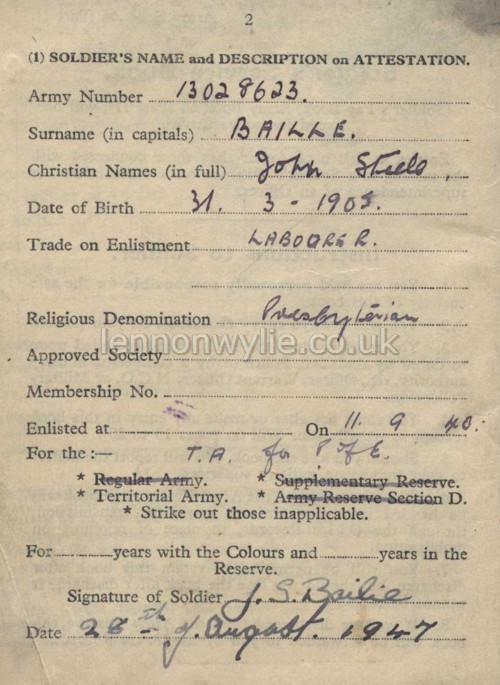 2
(1) SOLDIER'S NAME and DESCRIPTION on ATTESTATION.
Army Number 13028623.
Surname (in capitals) BAILLE.
Christian Names (in full) John Steele,
Date of Birth 31. 3 - 1905.
Trade on Enlistment LABOURER.
Religious Denomination Presbyterian
lennonwylie.co.uk
Approved Society
Membership No.
Enlisted at On 11. 9 40.
For the :— T.A. for P of E.
* Regular Army. * Supplementary Reserve.
* Territorial Army. * Army Reserve Section D.
* Strike out those inapplicable.
For years with the Colours and years in the
Reserve.
Signature of Soldier J. S. Bailie
Date 28th of August. 1947